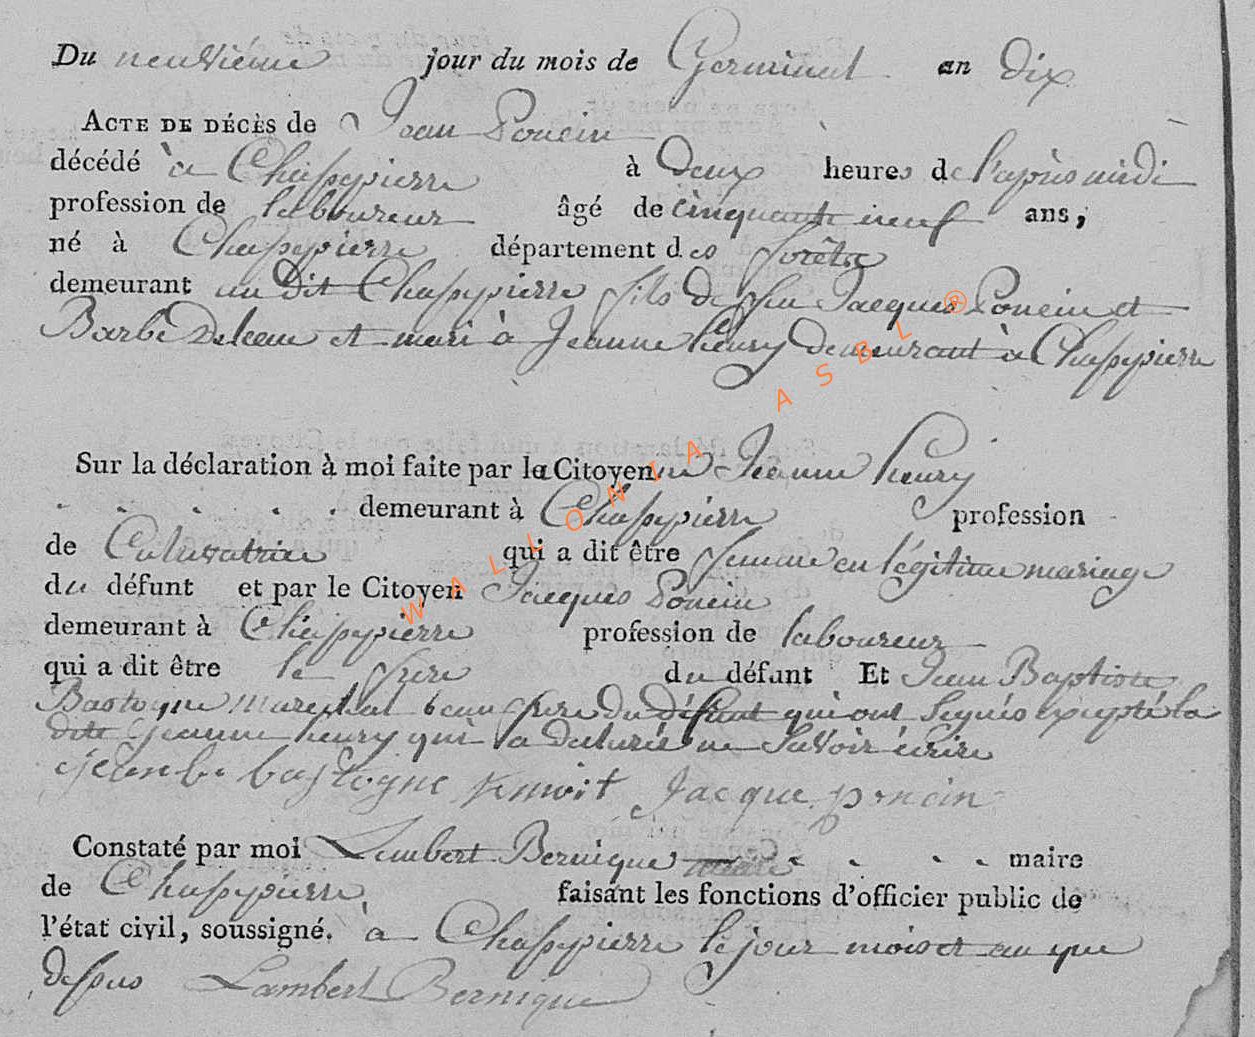 Du neuvième jour du mois de Germinal an dix
ACTE DE DÉCÈS de Jean Poncin
décédé à Chassepierre à Deux heures de l'après midi
profession de laboureur âgé de cinquante neuf ans,
né à Chassepierre département des forêts
demeurant au Dit Chassepierre fils de feu Jacques Poncin et
Barbe et mari à Jeanne henry demeurant à Chassepierre
Sur la déclaration à moi faite par la Citoyenne Jeanne henry
. . . . . . demeurant à Chassepierre profession
de Cultivatrice qui a dit être femme en légitime mariage
du défunt et par le Citoyen Jacques Poncin
demeurant à Chassepierre profession de laboureur
qui a dit être le frere du défunt Et Jean Baptiste
Bastogne marechal beau frere du défunt qui ont signés excepté la
dite Jeanne henry qui a declarée ne savoir écrire
jean ba bastogne Jacque poncin
Constaté par moi Lambert Bernique maire . . . maire
de Chassepierre faisant les fonctions d'officier public de
l'état civil, soussigné. à Chassepierre le jour mois et an que
dessus Lambert Bernique
WALLONIA ASBL ®